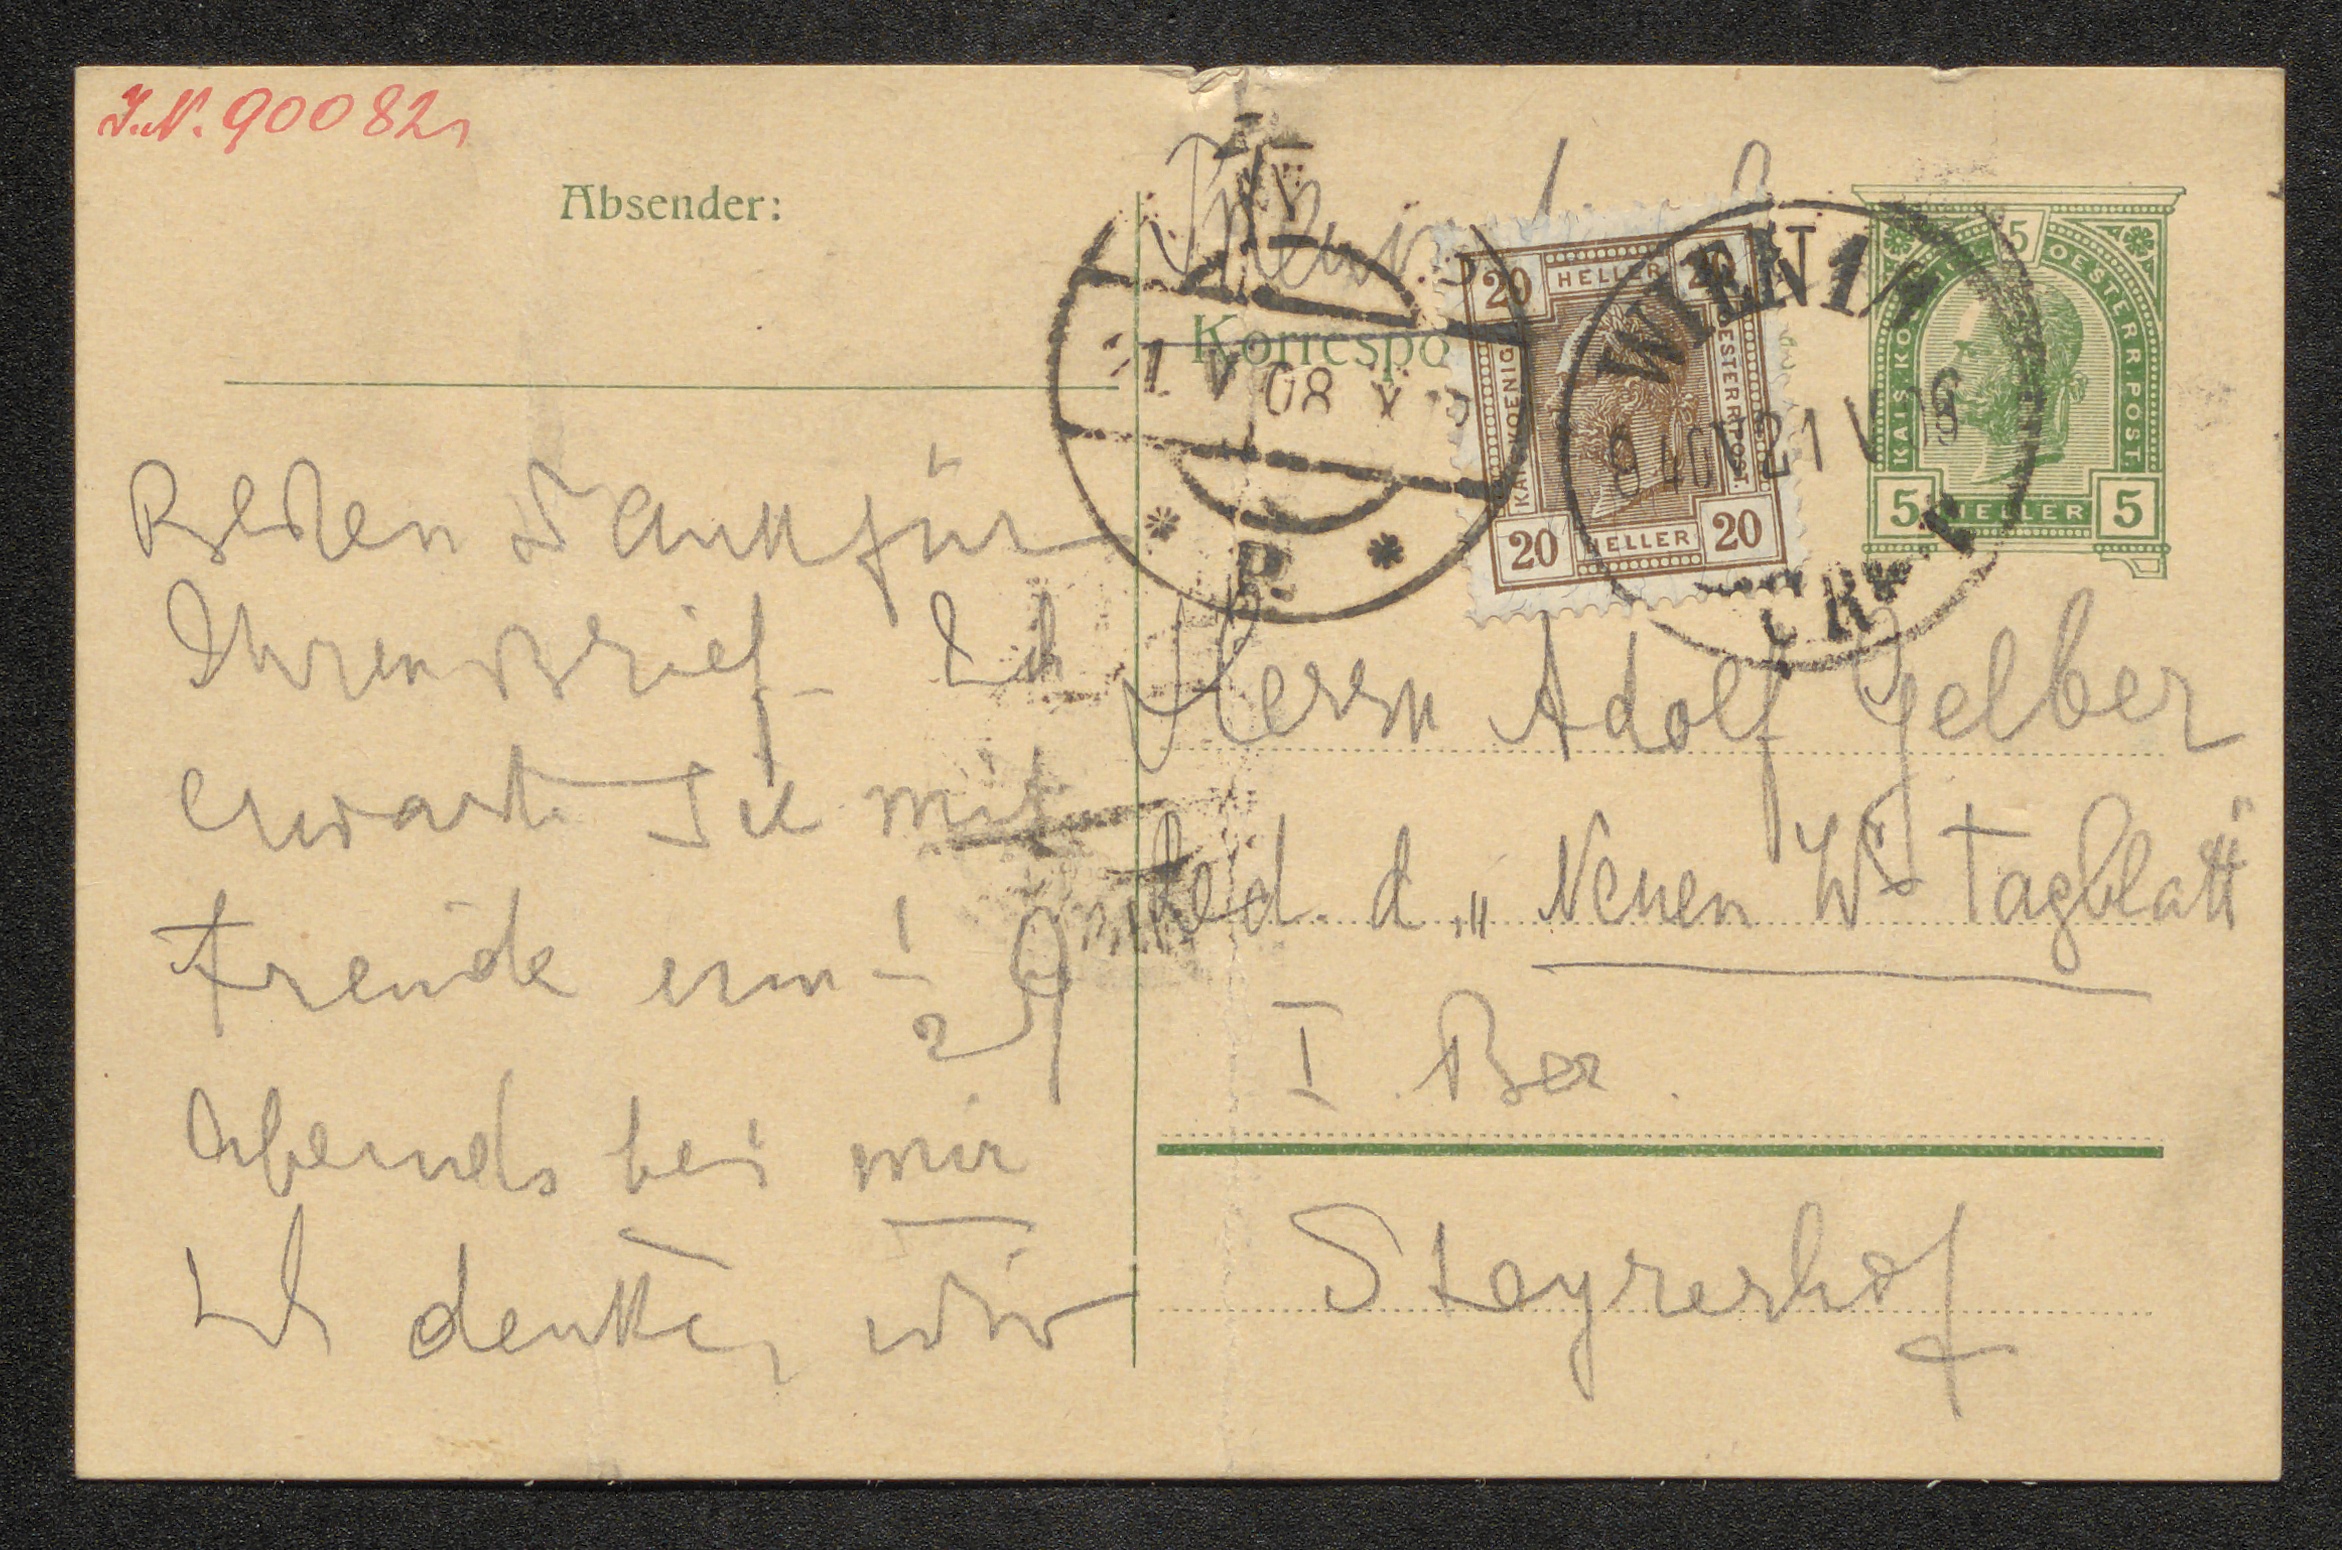 J.N. 90082
Absender:
Korrespo
21 V 08 X
WIEN 1/1
21 V 08
P.
R
20 HELLER 20
KAIS. KOENIGL. OESTERR. POST.
20 HELLER 20
5
KAIS. KOENIGL. OESTERR. POST.
5 HELLER 5
Besten Dank für
Ihren Brief. Ich
erwarte Sie mit
Freude um ½ 9
abends bei mir
Ich denke, wir
Herrn Adolf Gelber
Red. d. „Neuen W. Tagblatt"
I. Bez.
Steyrerhof